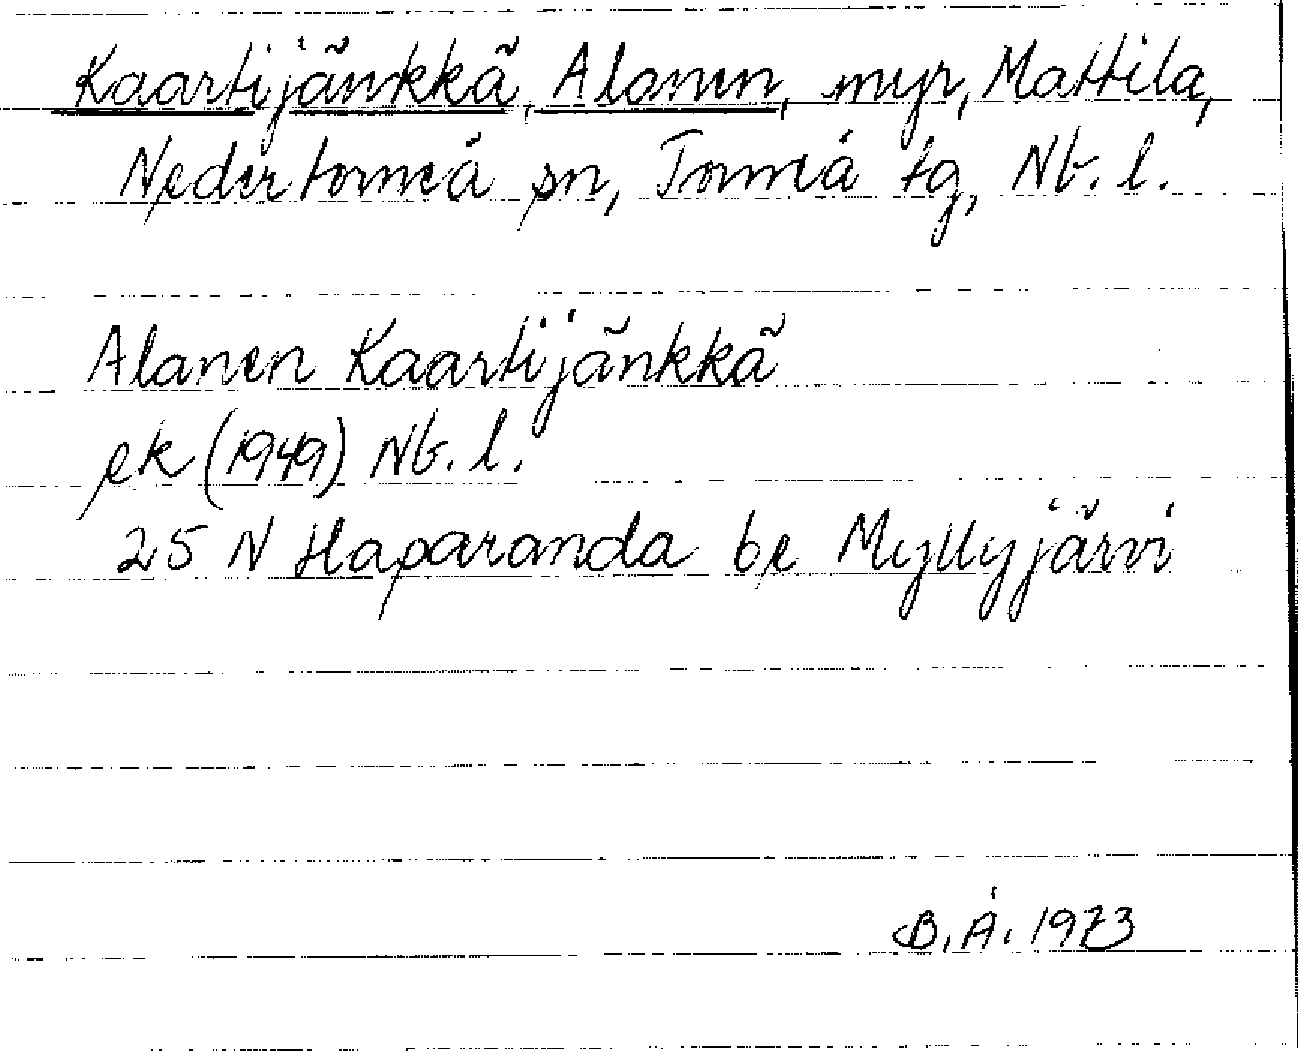 Kaartijänkkä, Alanen, myr, Mattila,
Nedertorneå sn, Torneå tg, Nb. l.
Alanen Kaartijänkkä
ek (1949) Nb. l.
25 N Haparanda be Myllyjärvi
B. Å. 1973